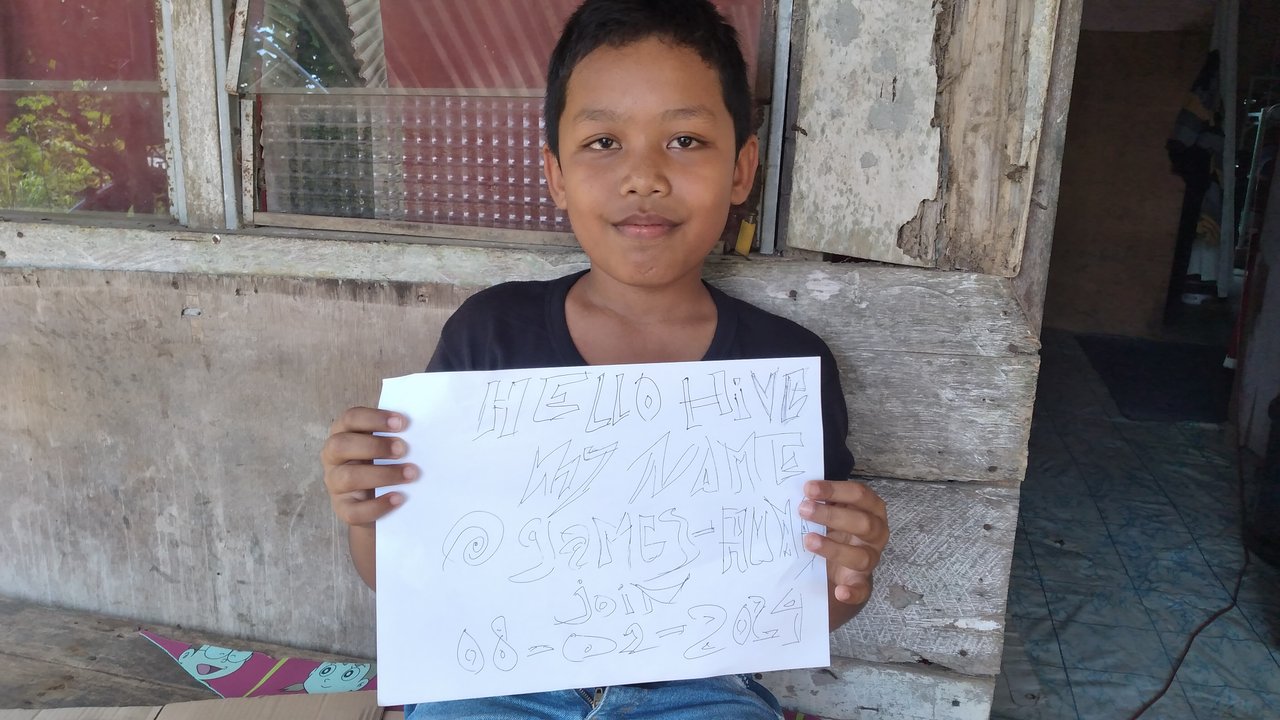 HELLO HiVE
MY NAME
@games-
join
08-02-2024